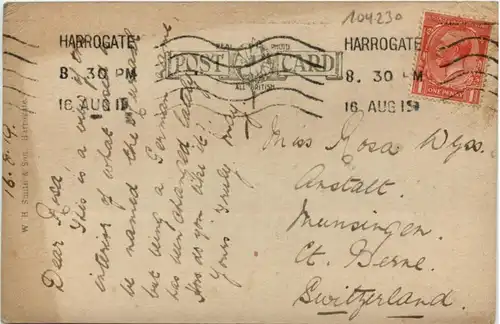 104230
HARROGATE
8. 30 PM
16 AUG 19
HARROGATE
8. 30 PM
16 AUG 19
REAL PHOTO
POST CARD
ALL BRITISH
ONE PENNY
W. H. Smith & Son, Harrogate.
16. 8. 19.
Dear Rosa
This is a view of the
interior of what used to
be named the
but being a German name
has been changed lately.
How do you like it?
Yours truly
Miss Rosa Wyss.
Anstalt.
Munsingen.
Ct. Berne.
Switzerland.